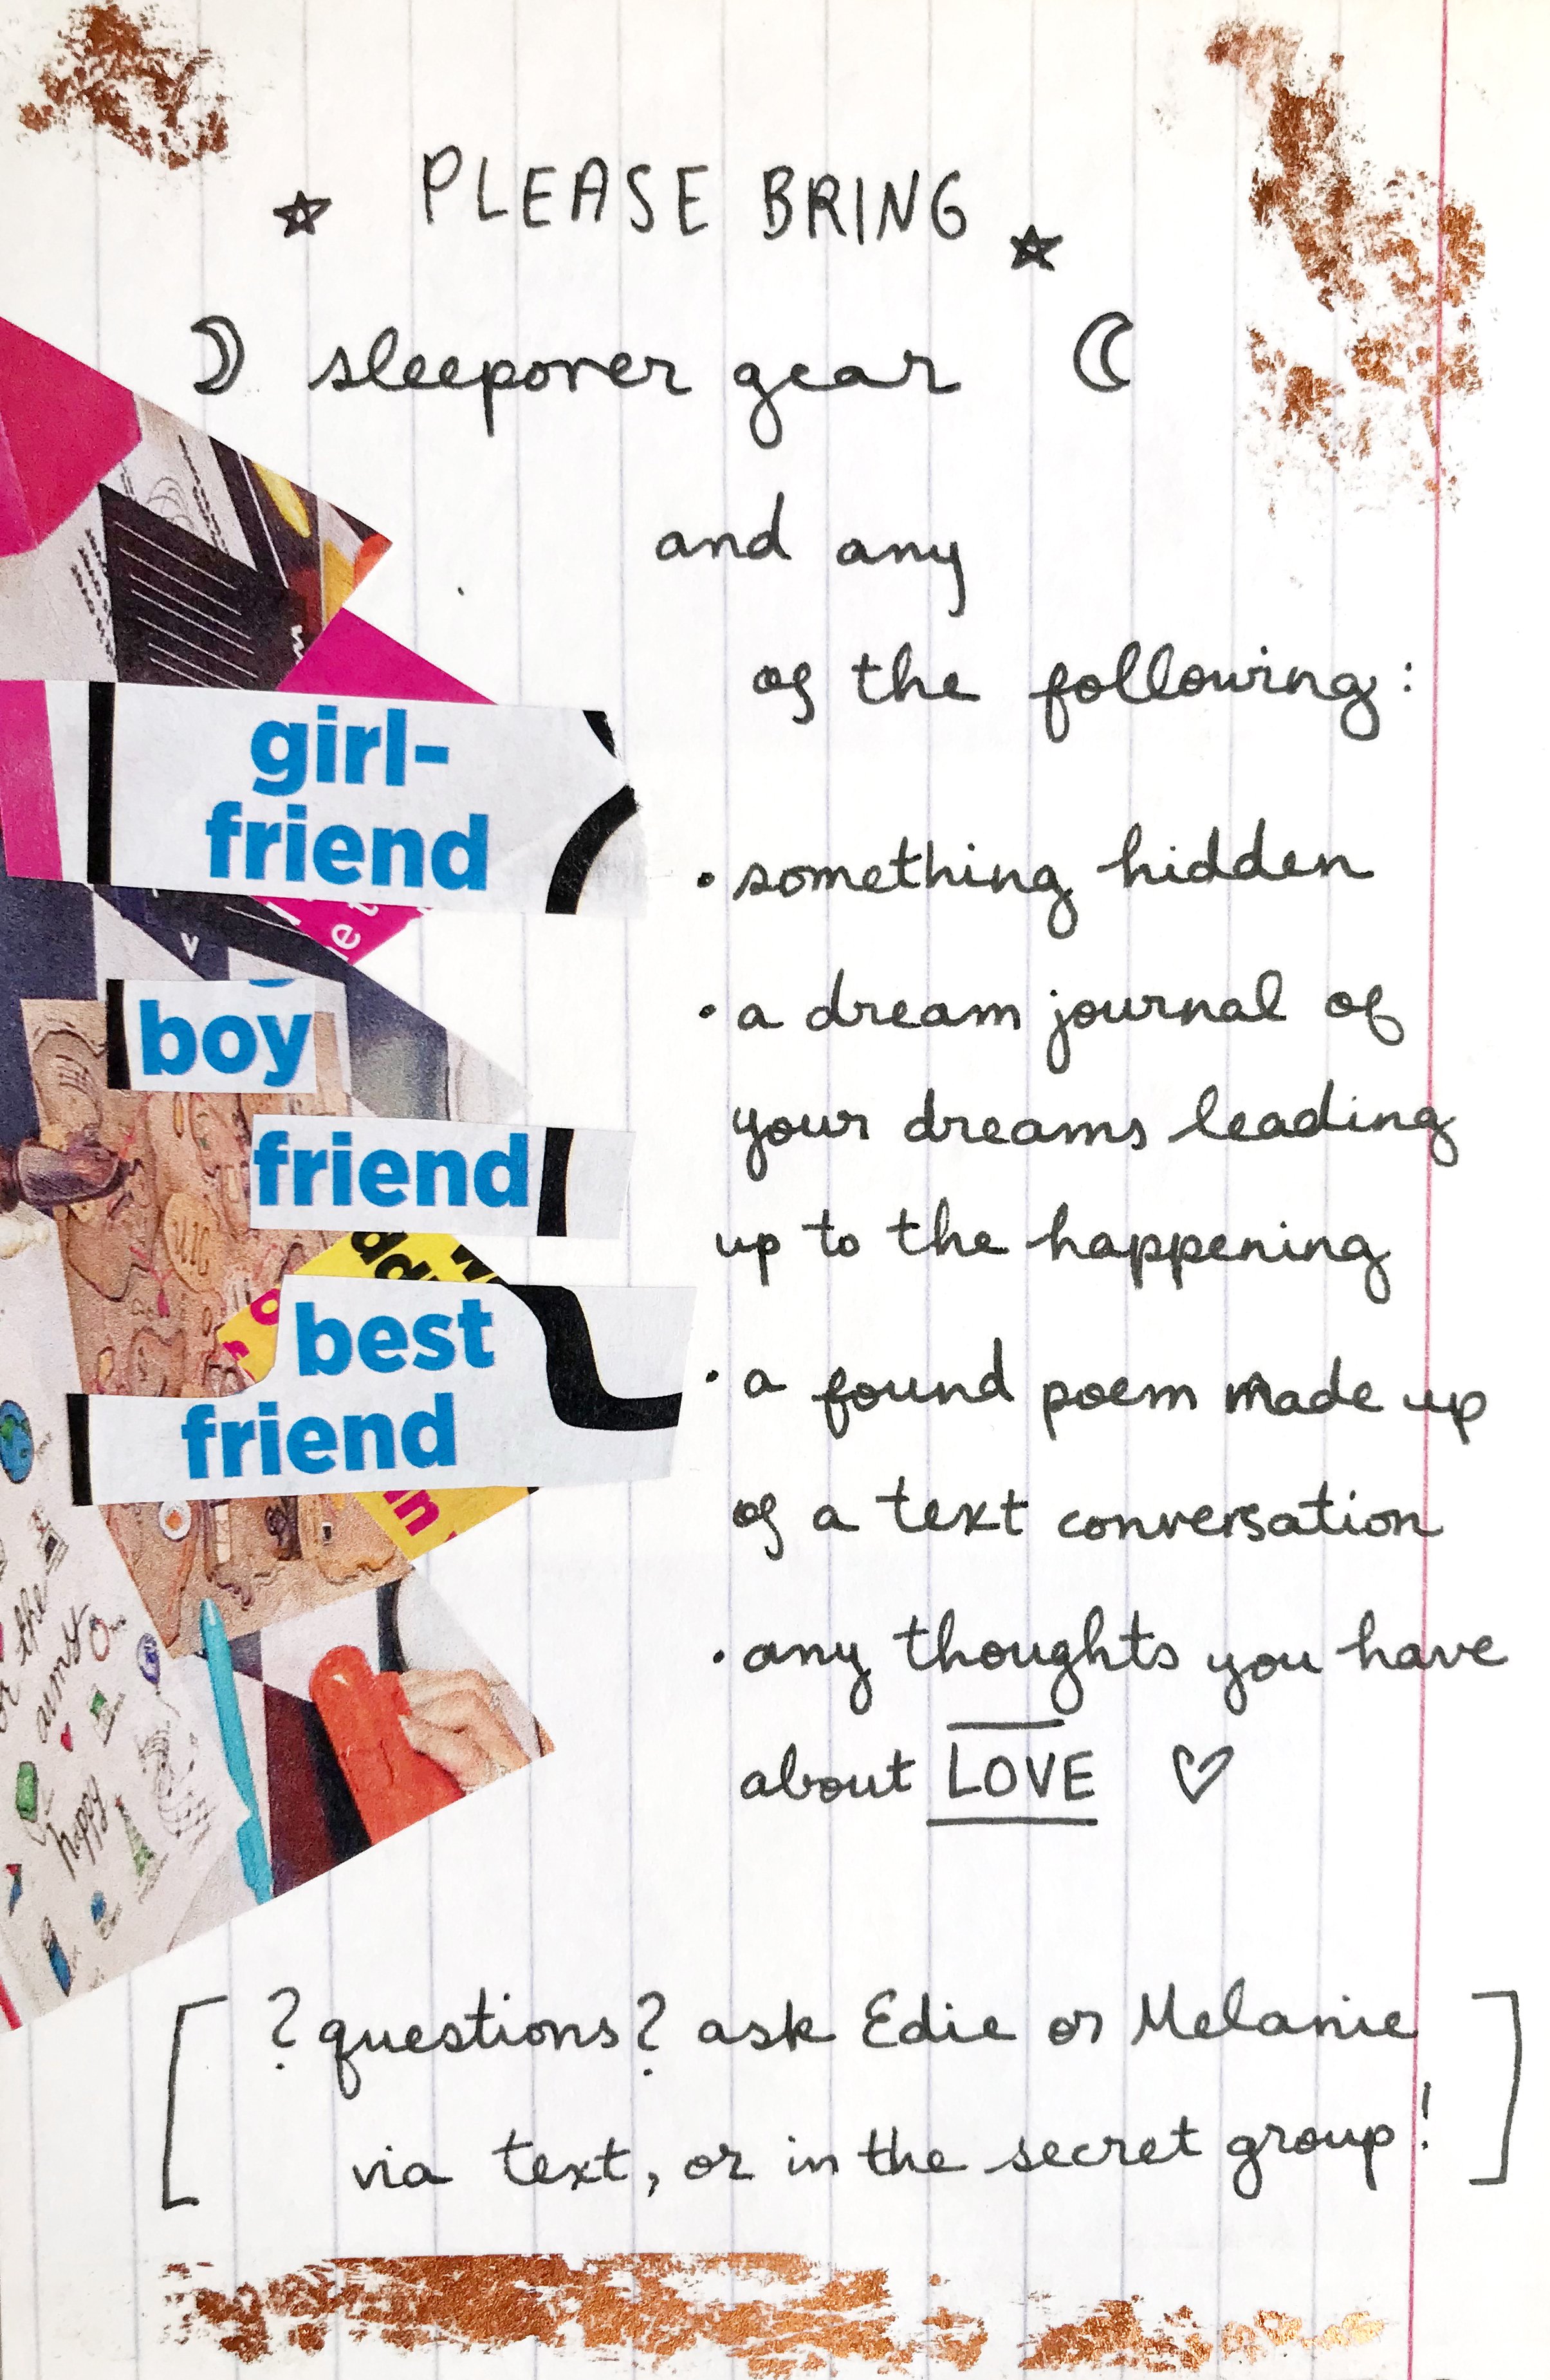 PLEASE BRING
sleepover gear
and any
of the following:
girl-
friend
boy
friend
best
friend
• something hidden
• a dream journal of
your dreams leading
up to the happening
• a found poem made up
of a text conversation
• any thoughts you have
about LOVE
[ ? questions? ask Edie or Melanie
via text, or in the secret group! ]
happy